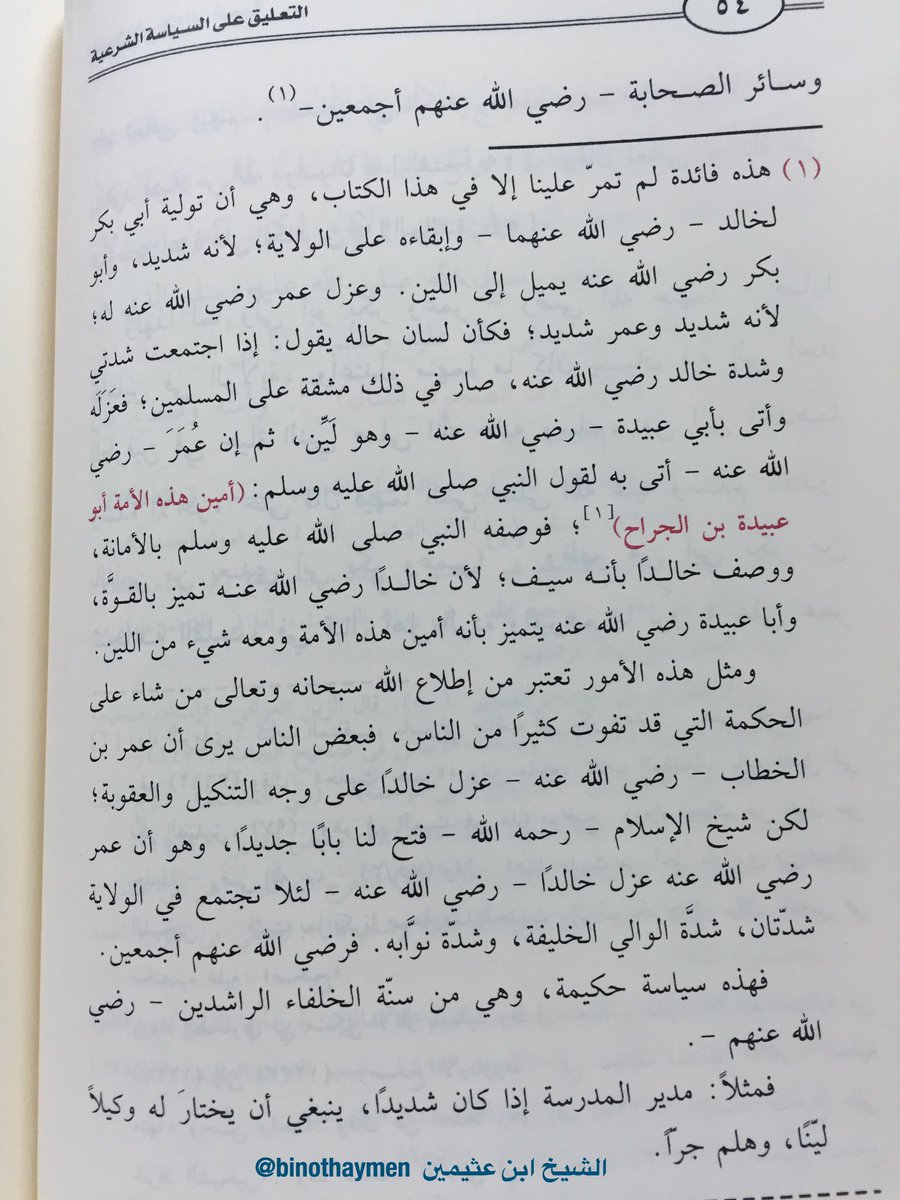 ٥٤
التعليق على السياسة الشرعية
وسائر الصحابة - رضي الله عنهم أجمعين-(١).
(١) هذه فائدة لم تمرّ علينا إلا في هذا الكتاب، وهي أن تولية أبي بكر
لخالد - رضي الله عنهما - وإبقاءه على الولاية؛ لأنه شديد، وأبو
بكر رضي الله عنه يميل إلى اللين. وعزل عمر رضي الله عنه له؛
لأنه شديد وعمر شديد؛ فكأن لسان حاله يقول: إذا اجتمعت شدتي
وشدة خالد رضي الله عنه، صار في ذلك مشقة على المسلمين؛ فعَزَلَه
وأتى بأبي عبيدة - رضي الله عنه - وهو لَيِّن، ثم إن عُمَرَ - رضي
الله عنه - أتى به لقول النبي صلى الله عليه وسلم: (أمين هذه الأمة أبو
عبيدة بن الجراح)[١]؛ فوصفه النبي صلى الله عليه وسلم بالأمانة،
ووصف خالدًا بأنه سيف؛ لأن خالدًا رضي الله عنه تميز بالقوَّة،
وأبا عبيدة رضي الله عنه يتميز بأنه أمين هذه الأمة ومعه شيء من اللين.
ومثل هذه الأمور تعتبر من إطلاع الله سبحانه وتعالى من شاء على
الحكمة التي قد تفوت كثيرًا من الناس، فبعض الناس يرى أن عمر بن
الخطاب - رضي الله عنه - عزل خالدًا على وجه التنكيل والعقوبة؛
لكن شيخ الإسلام - رحمه الله - فتح لنا بابًا جديدًا، وهو أن عمر
رضي الله عنه عزل خالدًا - رضي الله عنه - لئلا تجتمع في الولاية
شدّتان، شدَّة الوالي الخليفة، وشدّة نوَّابه. فرضي الله عنهم أجمعين.
فهذه سياسة حكيمة، وهي من سنّة الخلفاء الراشدين - رضي
الله عنهم -.
فمثلاً: مدير المدرسة إذا كان شديدًا، ينبغي أن يختارَ له وكيلاً
ليّنًا، وهلم جرّاً.
الشيخ ابن عثيمين @binothaymen